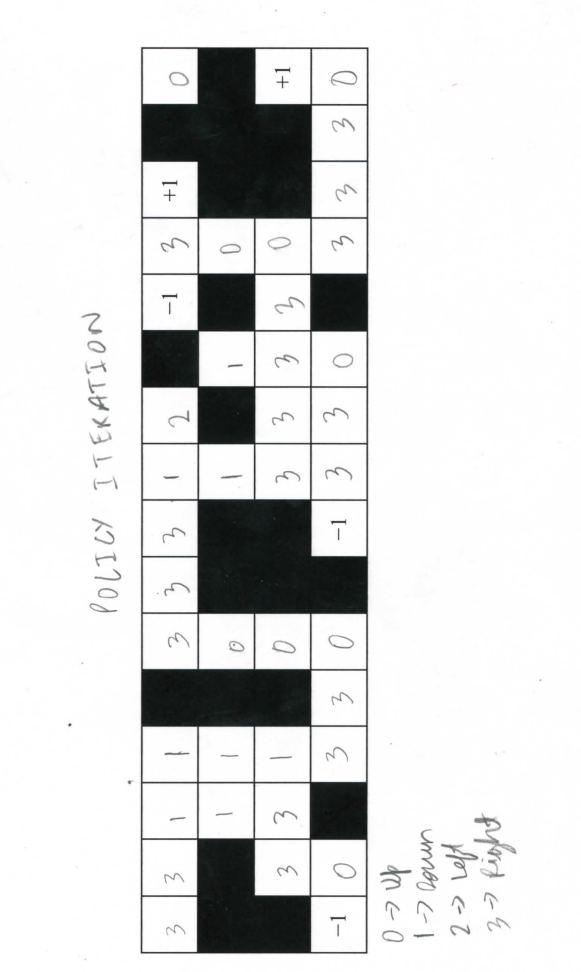 POLICY ITERATION
3 3 1 1 3 3 3 1 2 -1 3 +1 0
1 1 0 1 1 0
3 3 1 0 3 3 3 3 0 +1
-1 0 3 3 0 -1 3 3 0 3 3 3 0
0 -> Up
1 -> Down
2 -> Left
3 -> Right